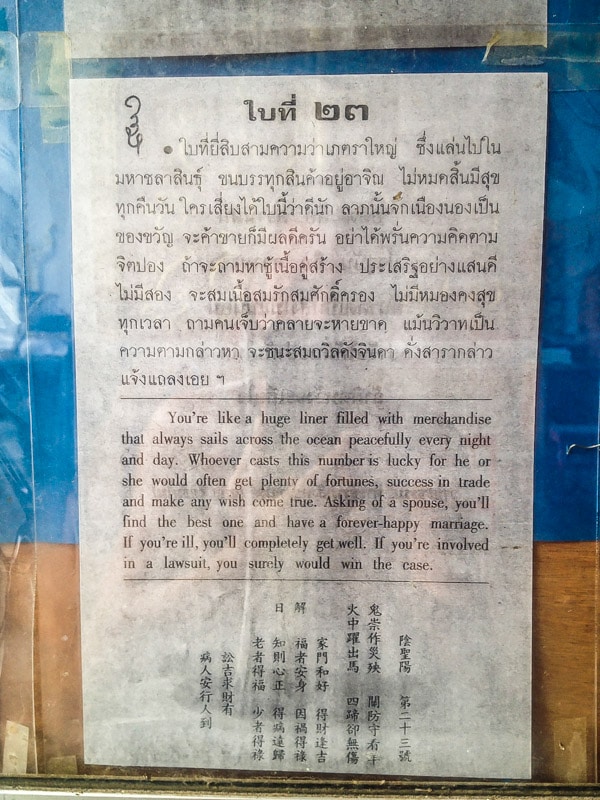 ใบที่ ๒๓
● ใบที่ยี่สิบสามความว่าเภตราใหญ่ ซึ่งแล่นไปใน
มหาชลาสินธุ์ ขนบรรทุกสินค้าอยู่อาจิณ ไม่หมดสิ้นมีสุข
ทุกคืนวัน ใครเสี่ยงได้ใบนี้ว่าดีนัก ลาภนั้นจักเนืองนองเป็น
ของขวัญ จะค้าขายก็มีผลดีครัน อย่าได้พรั่นความคิดตาม
จิตปอง ถ้าจะถามหาชู้เนื้อคู่สร้าง ประเสริฐอย่างแสนดี
ไม่มีสอง จะสมเนื้อสมรักสมศักดิ์ครอง ไม่มีหมองคงสุข
ทุกเวลา ถามคนเจ็บว่าคลายจะหายขาด แม้นวิวาทเป็น
ความตามกล่าวหา จะชนะสมถวิลดังจินดา ดั่งสารากล่าว
แจ้งแถลงเอย ฯ
You're like a huge liner filled with merchandise
that always sails across the ocean peacefully every night
and day. Whoever casts this number is lucky for he or
she would often get plenty of fortunes, success in trade
and make any wish come true. Asking of a spouse, you'll
find the best one and have a forever-happy marriage.
If you're ill, you'll completely get well. If you're involved
in a lawsuit, you surely would win the case.
陰聖陽 第二十三號
鬼祟作災殃 關防守看羊
火中躍出馬 四蹄卻無傷
家門和好 得財逢吉
解 福者安身 因禍得祿
日 知則心正 得病遠歸
老者得福 少者得祿
訟吉求財有
病人安行人到